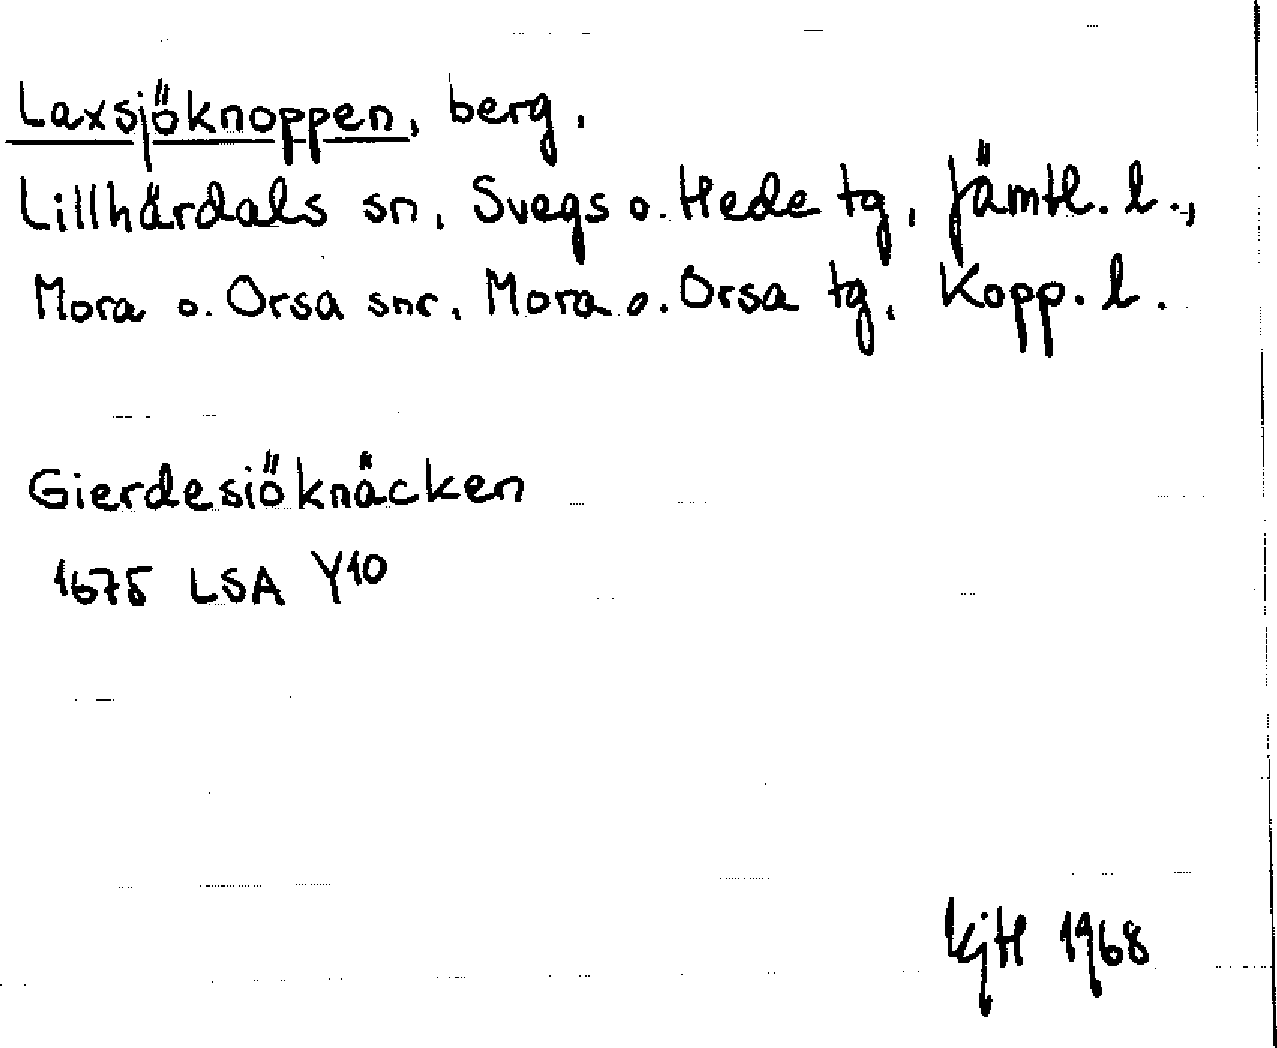 Laxsjöknoppen, berg.
Lillhärdals sn, Svegs o. Hede tg, Jämtl. l.,
Mora o. Orsa snr, Mora o. Orsa tg, Kopp. l.
Gierdesiöknäcken
1675 LSA Y10
KjH 1968